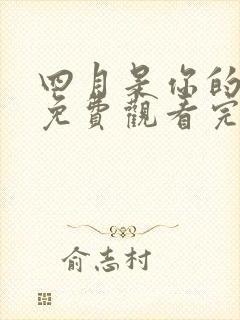 四月是你的
免費觀看完
俞志村